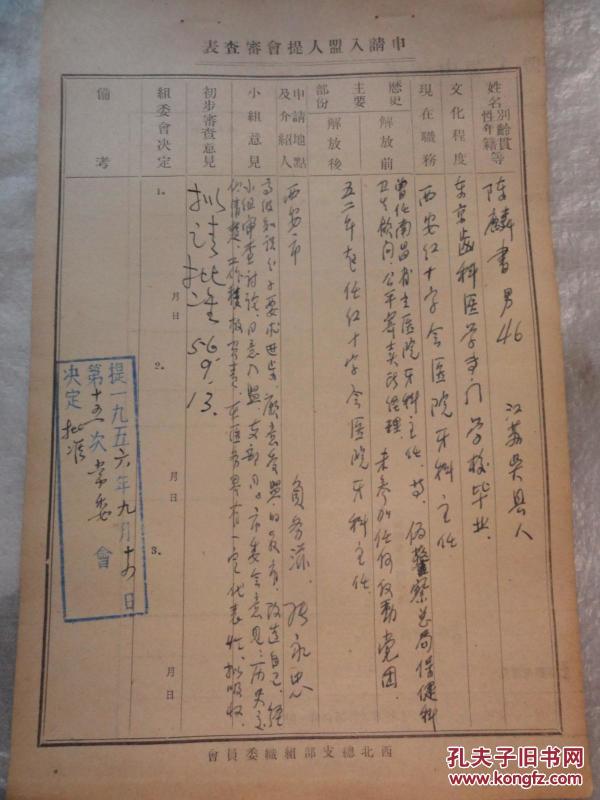 申請入盟人提會審查表
姓名 性別 年齡 籍貫等
陈麟书 男 46 江苏吴县人
文化程度
东京齿科医学专门学校毕业
現在職務
西安红十字会医院牙科主任
歷史主要部份
解放前
曾任南昌省立医院牙科主任、伪警察总局保健科
公平寄卖所经理 未参加任何反动党团
解放後
五二年起任红十字会医院牙科主任
申請地點及介紹人
西安市 张永思
小組意見
高级知识分子要求进步，愿意参盟的教育，改造自己，经
小组审查讨论，同意入盟，支部同 市委会意见：历史
工作积极负责，在医务界有一定代表性，拟吸收
初步審查意見
拟请批准 56.9.13.
組委會決定
1. 月 日
2. 月 日
3. 月 日
備考
提一九五六年九月 日
第 次常委會
决定批准
西北總支部組織委員會
孔夫子旧书网
www.kongfz.com